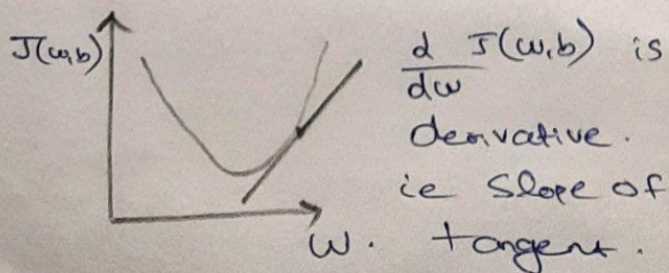 J(w,b)
d/dw J(w,b) is
derivative.
ie Slope of
tangent.
w.